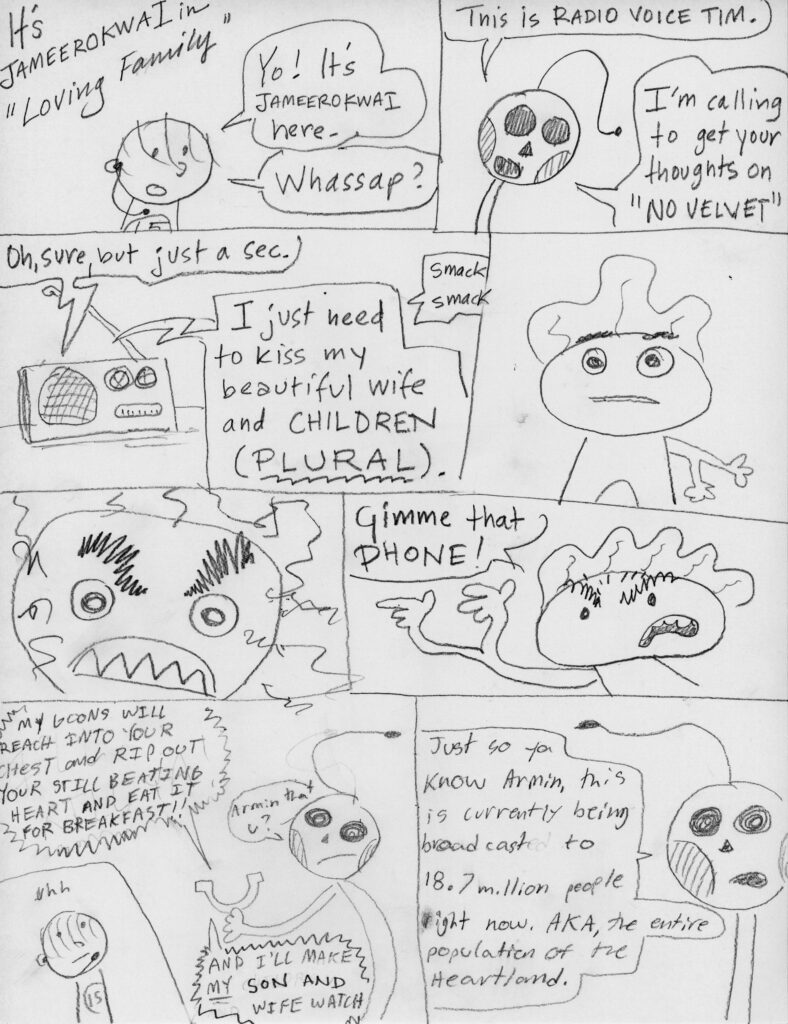 It's
JAMEEROKWAI in
"Loving Family"
Yo! It's
JAMEEROKWAI
here.
Whassap?
15
This is RADIO VOICE TIM.
I'm calling
to get your
thoughts on
"NO VELVET"
Oh, sure, but just a sec.
I just need
to kiss my
beautiful wife
and CHILDREN
(PLURAL).
Smack
smack
Gimme that
PHONE!
MY GOONS WILL
REACH INTO YOUR
CHEST and RIP OUT
YOUR STILL BEATING
HEART AND EAT IT
FOR BREAKFAST!!
Armin that
U?
uhh
15
AND I'LL MAKE
MY SON AND
WIFE WATCH
Just so ya
know Armin, this
is currently being
broadcasted to
18.7 million people
right now. AKA, the entire
population of the
Heartland.